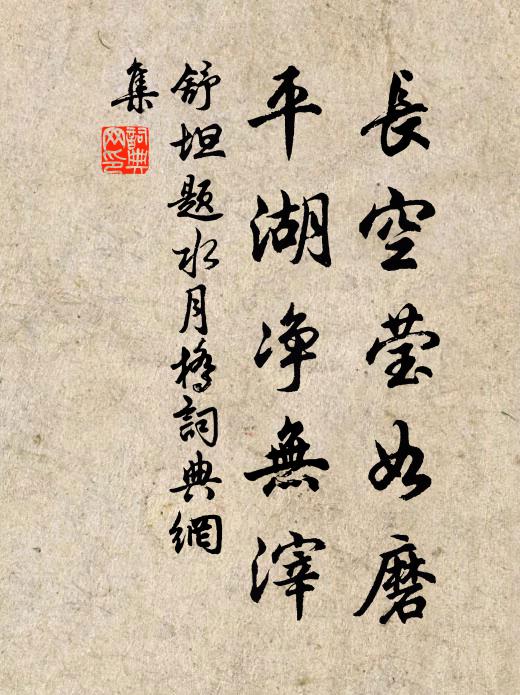 長空瑩如磨
平湖净無滓
舒坦題水月橋詞典網
集
詞典
网印